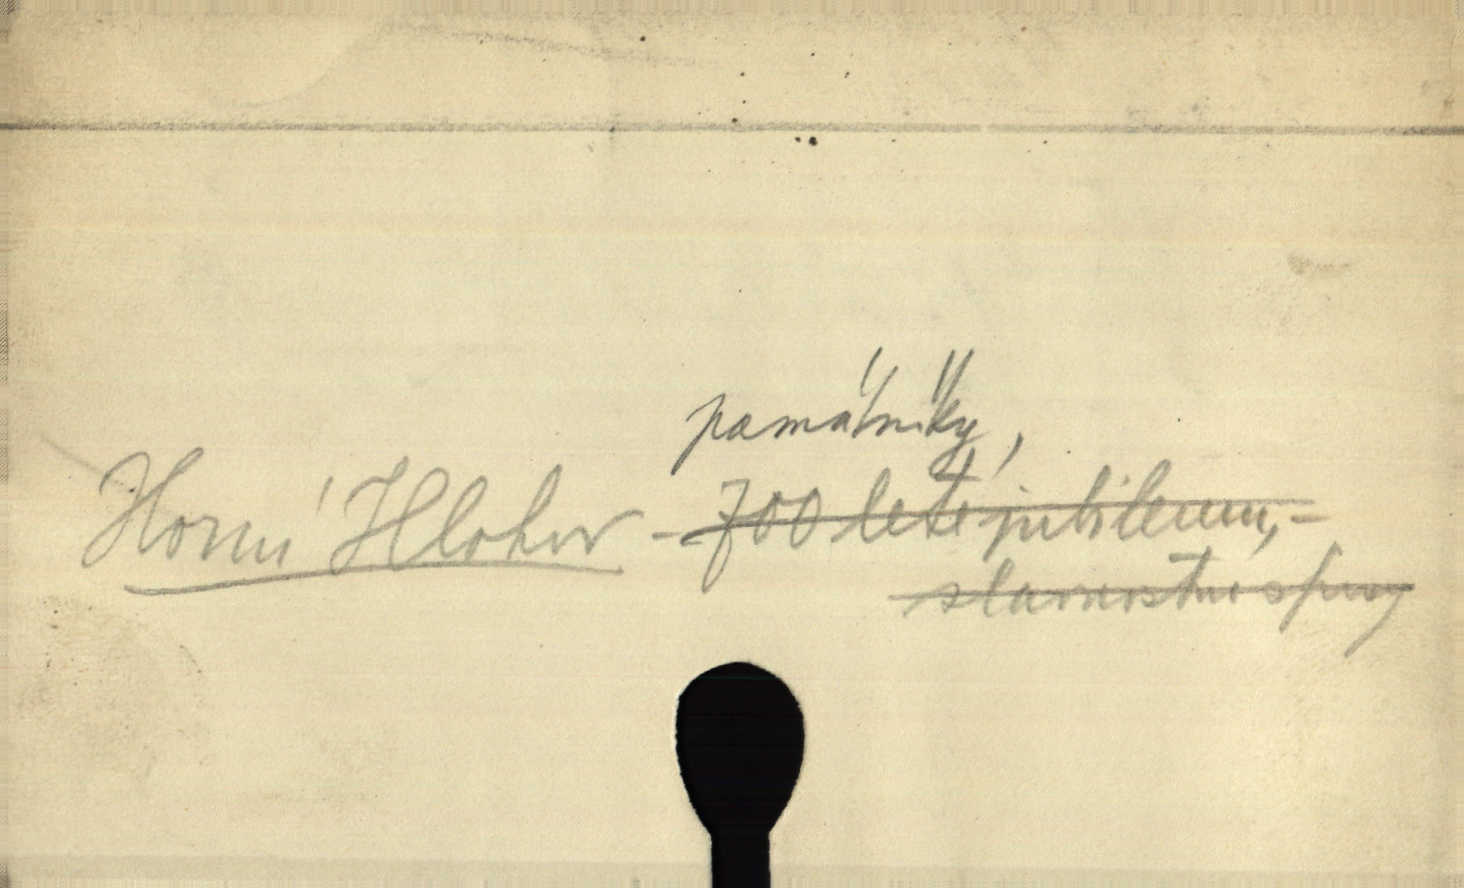 památníky,
Horní Hlohov - 700 leté jubileum, -
slavnostní spisy